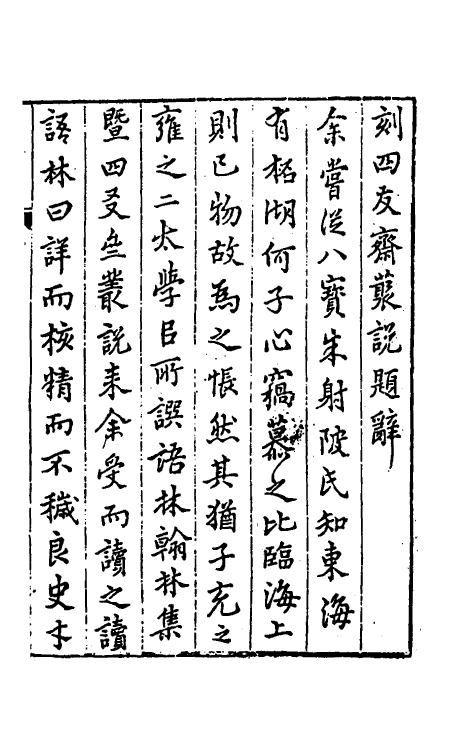 刻四友齋叢說題辭
余嘗從八寶朱射陂氏知東海
有柘湖何子心竊慕之比臨海上
則已物故為之悵然其猶子充之
雍之二太學以所譔語林翰林集
暨四友齋叢說来余受而讀之讀
語林曰詳而核精而不穢良史才